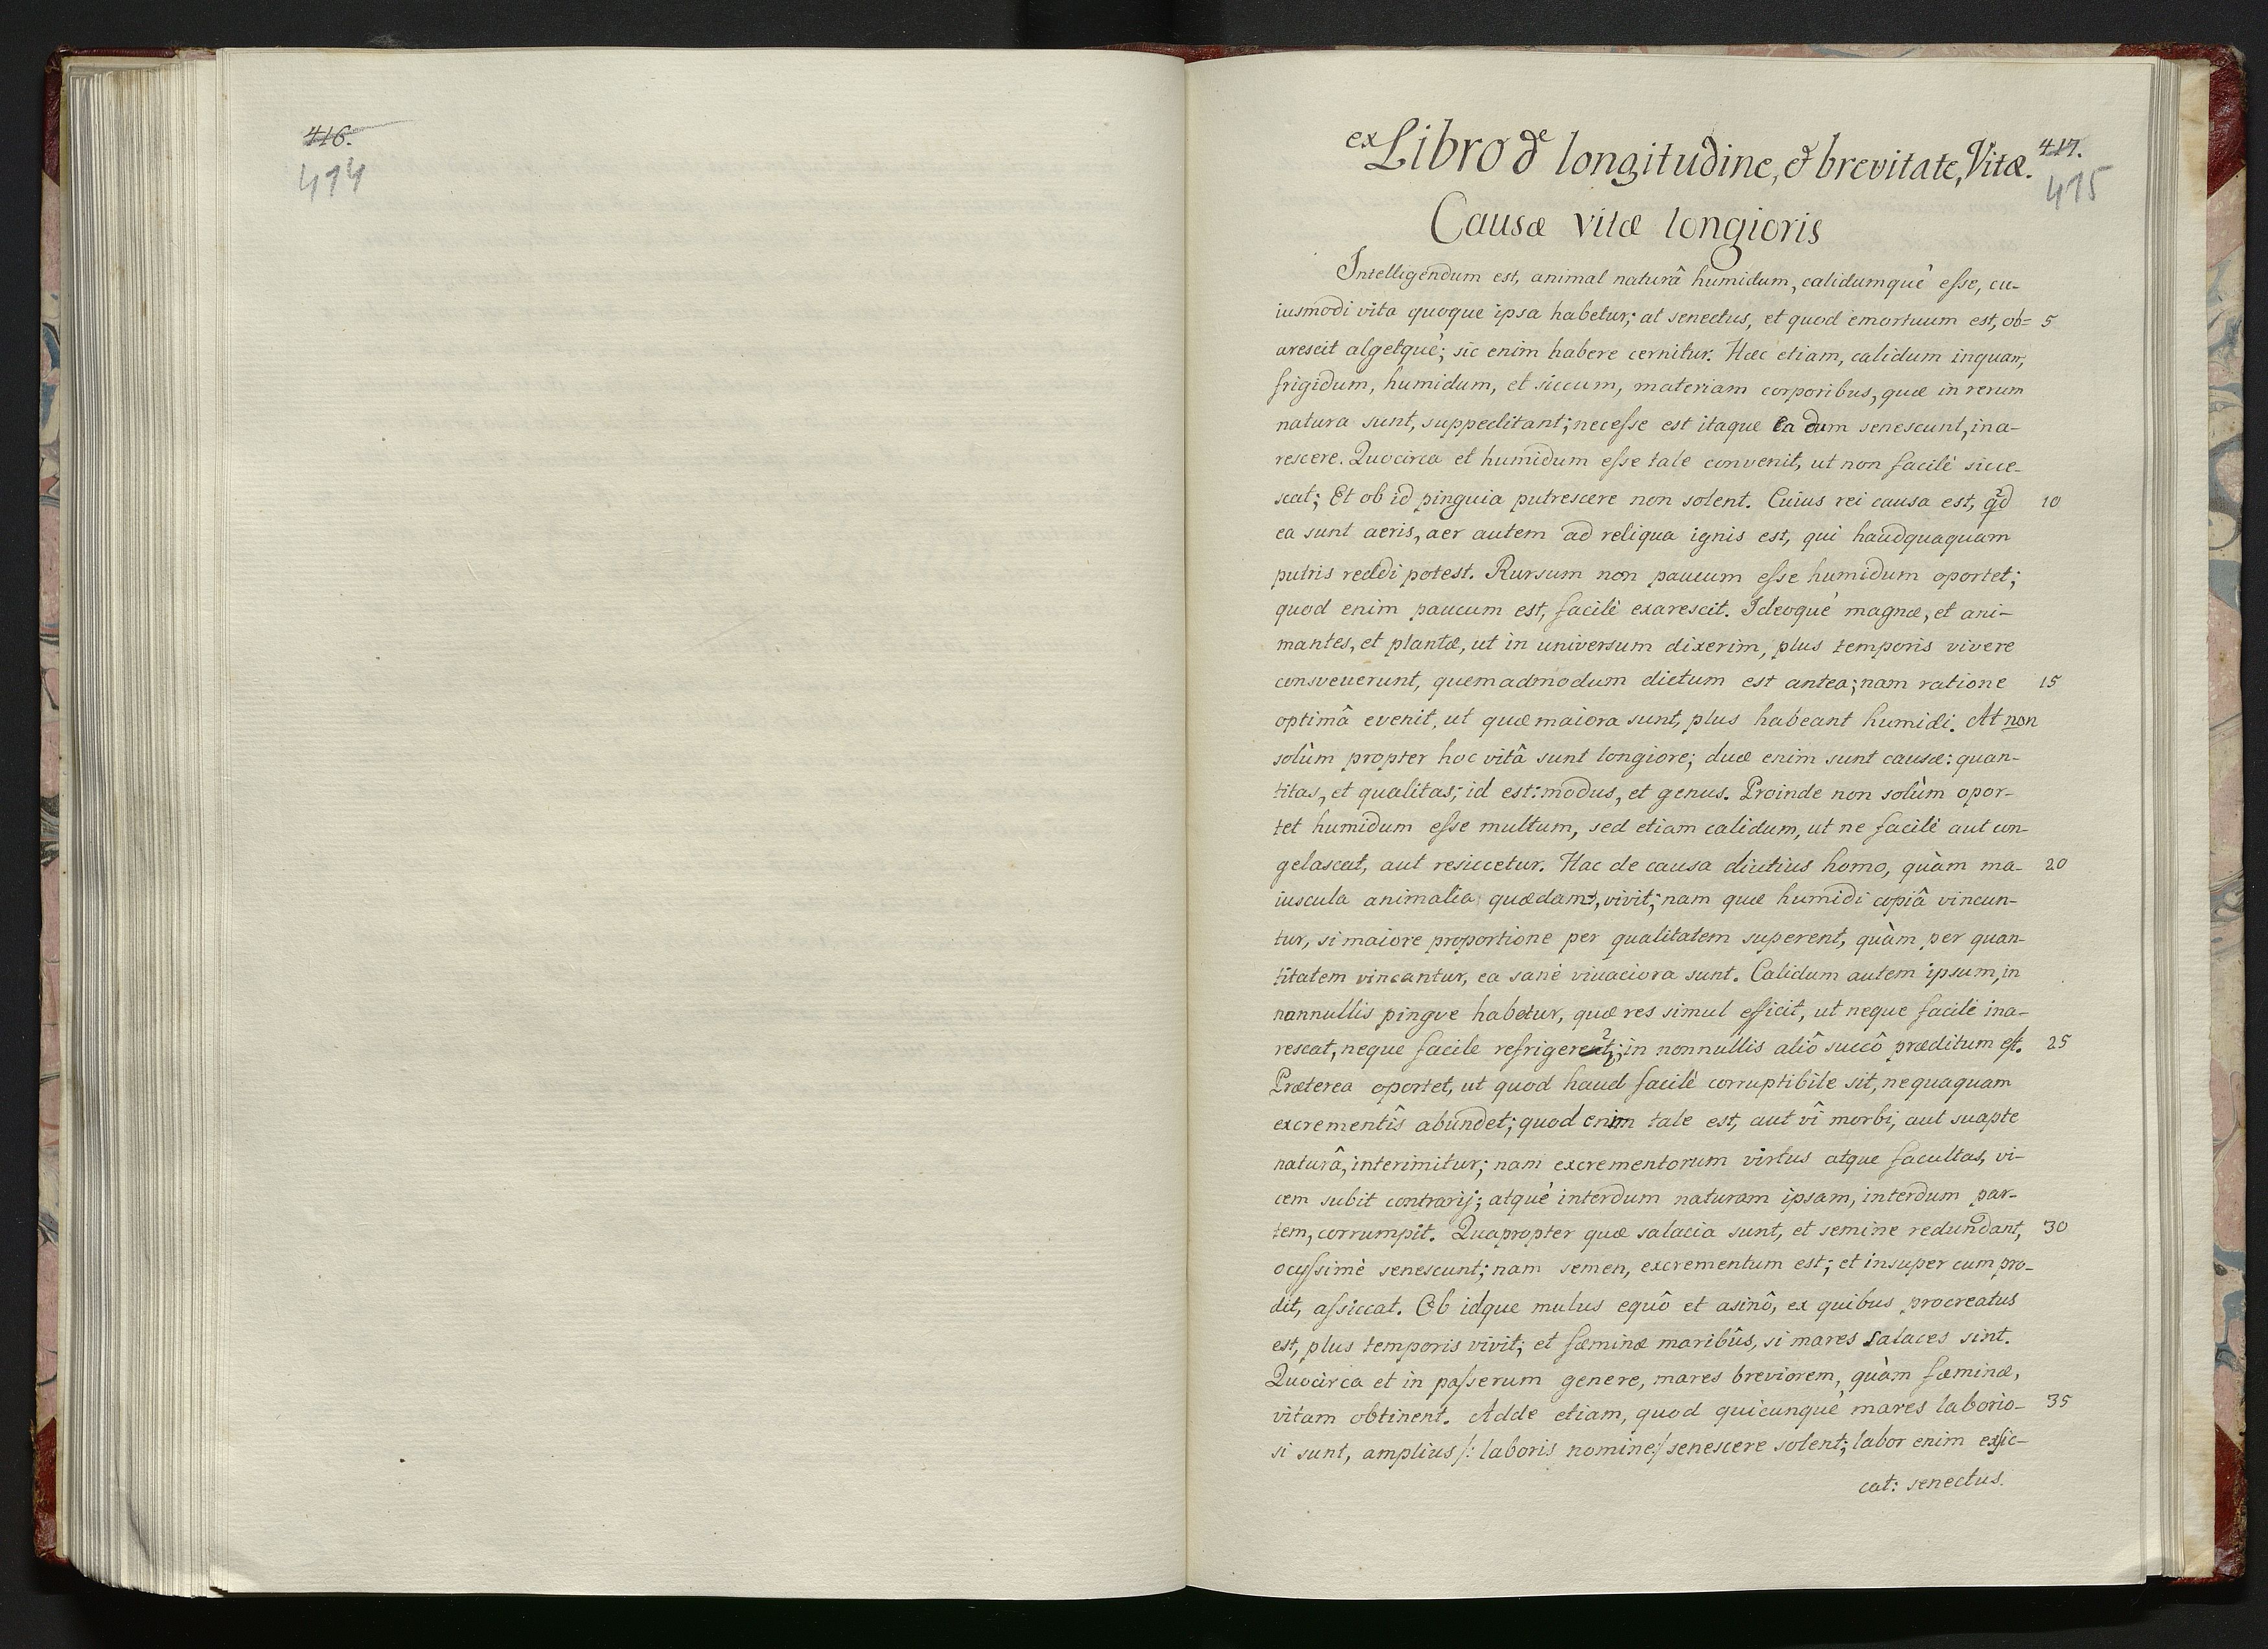 416.
414
ex Libro de longitudine, et brevitate, Vitæ.
417.
415
Causæ vitæ longioris
Intelligendum est, animal naturâ humidum, calidumquè esse, cu-
iusmodi vita quoque ipsa habetur; at senectus, et quod emortuum est, ob= 5
arescit algetquè; sic enim habere cernitur. Hæc etiam, calidum inquam,
frigidum, humidum, et siccum, materiam corporibus, quæ in rerum
natura sunt, suppeditant; necesse est itaque ea dum senescunt, ina-
rescere. Quocirca et humidum esse tale convenit, ut non facilè sicce-
scat; Et ob id pinguia putrescere non solent. Cuius rei causa est, qd 10
ea sunt aeris, aer autem ad reliqua ignis est, qui haudquaquam
putris reddi potest. Rursum non paucum esse humidum oportet;
quod enim paucum est, facilè exarescit. Ideoquè magnæ, et ani-
mantes, et plantæ, ut in universum dixerim, plus temporis vivere
consveuerunt, quemadmodum dictum est antea; nam ratione 15
optimâ evenit, ut quæ maiora sunt, plus habeant humidi. At non
solùm propter hoc vitâ sunt longiore; duæ enim sunt causæ: quan-
titas, et qualitas; id est: modus, et genus. Proinde non solùm opor-
tet humidum esse multum, sed etiam calidum, ut ne facilè aut con-
gelascat, aut resiccetur. Hac de causa diutius homo, quàm ma- 20
iuscula animalia quædam, vivit; nam quæ humidi copiâ vincun-
tur, si maiore proportione per qualitatem superent, quàm per quan-
titatem vincantur, ea sanè viuaciora sunt. Calidum autem ipsum, in
nonnullis pingve habetur, quæ res simul efficit, ut neque facilè ina-
rescat, neque facile refrigeret; in nonnullis aliô succô præditum est. 25
Præterea oportet, ut quod haud facilè corruptibile sit, nequaquam
excrementîs abundet; quod enim tale est, aut vî morbi, aut suapte
naturâ, interimitur; nam excrementorum virtus atque facultas, vi-
cem subit contrarij; atquè interdum naturam ipsam, interdum par-
tem, corrumpit. Quapropter quæ salacia sunt, et semine redundant, 30
ocyssimè senescunt; nam semen, excrementum est; et insuper cum pro-
dit, assiccat. Ob idque mulus equô et asinô, ex quibus procreatus
est, plus temporis vivit; et fæminæ maribûs, si mares salaces sint.
Quocirca et in passerum genere, mares breviorem, quàm fæminæ,
vitam obtinent. Adde etiam, quod quicunquè mares laborio- 35
si sunt, amplius /: laboris nomine:/ senescere solent; labor enim exsic-
cat: senectus.